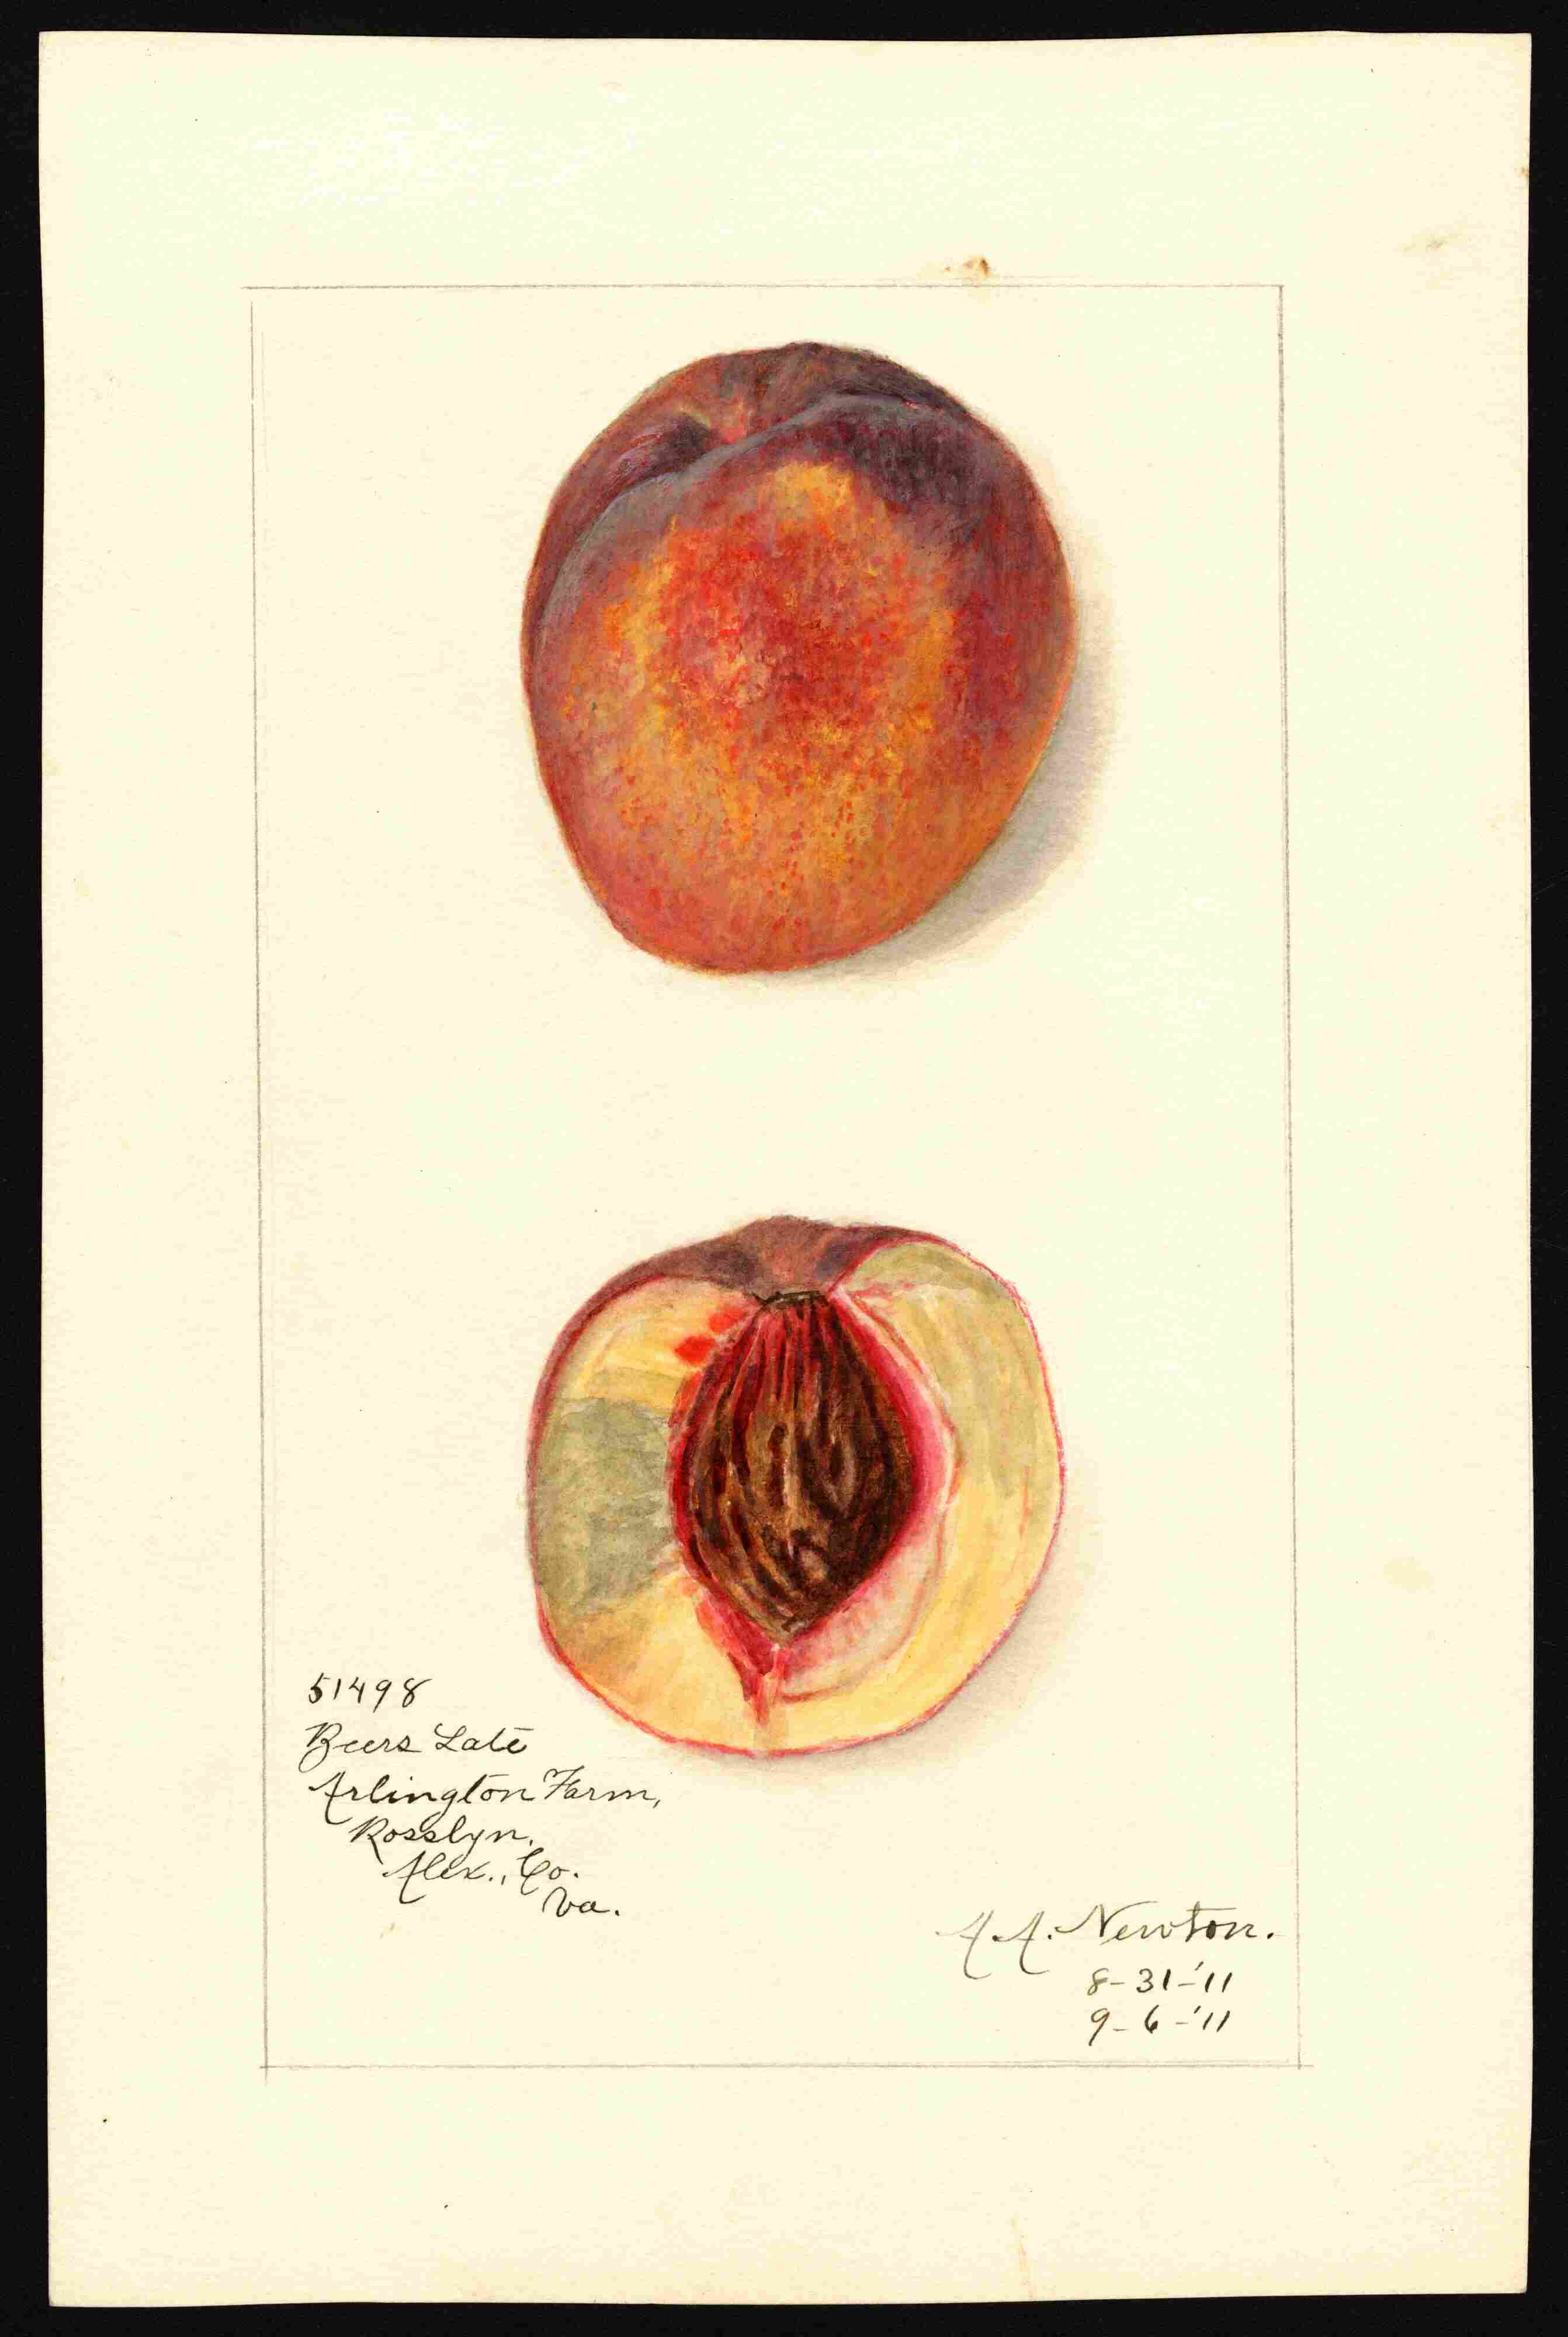 51498
Beers Late
Arlington Farm,
Rosslyn.
Alex., Co.
Va.
A. A. Newton.
8-31-'11
9-6-'11